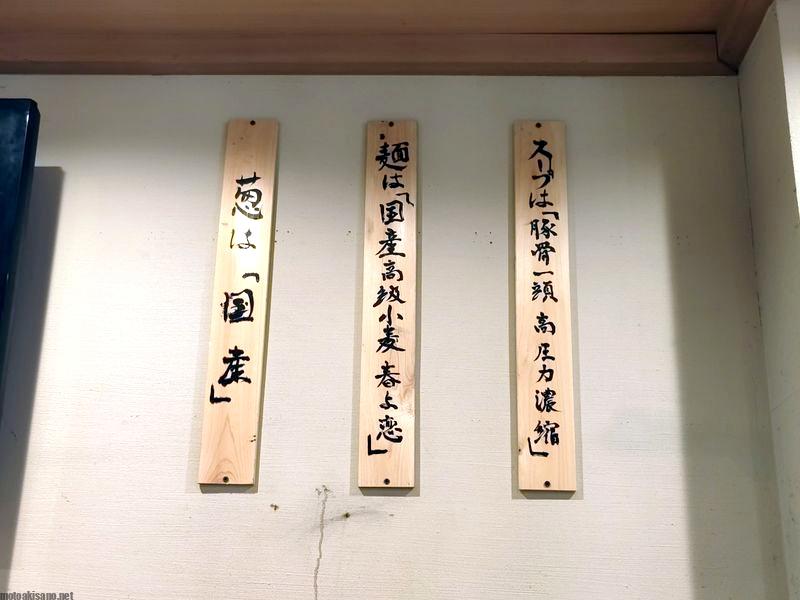 スープは「豚骨一頭 高圧力濃縮」
麺は「国産高級小麦 春よ恋」
葱は「国産」
motoakisano.net